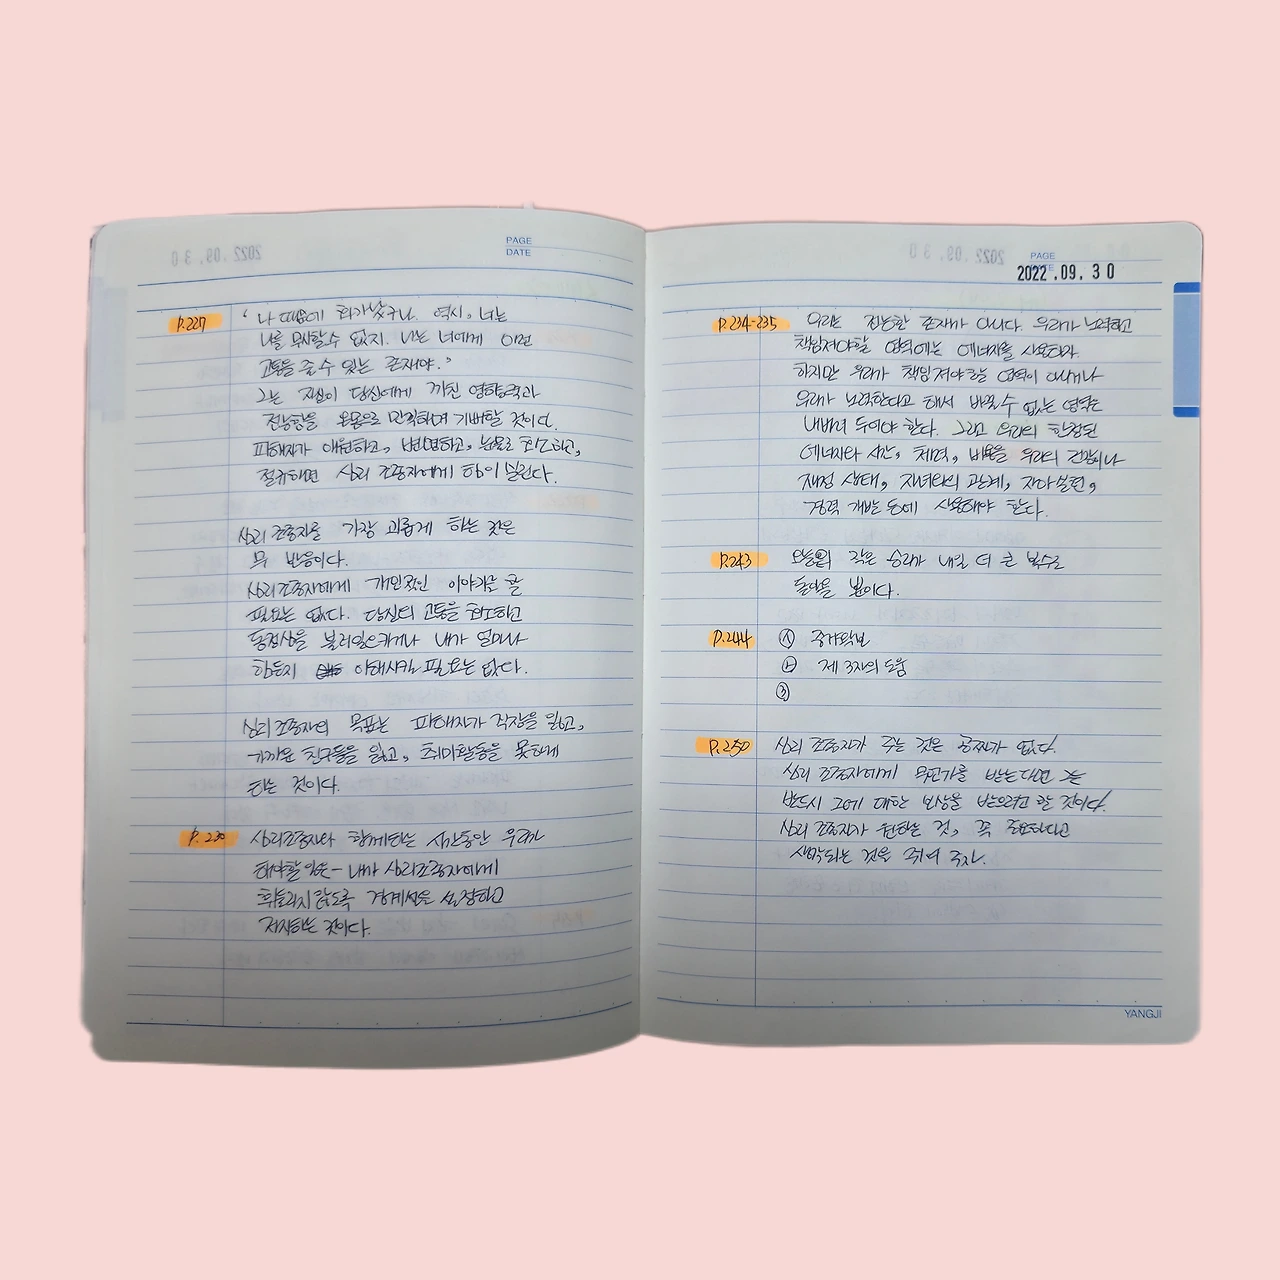 PAGE
DATE
P.227 '나 때문에 화가났구나. 역시, 너는
나를 무시할 수 없지. 나는 너에게 이런
고통을 줄 수 있는 존재야.'
그는 자신이 당신에게 끼친 영향력과
전능함을 온몸으로 만끽하며 기뻐할 것이다.
피해자가 애원하고, 변명하고, 눈물로 호소하고,
절규하면 심리 조종자에게 힘이 실린다.
심리 조종자를 가장 괴롭게 하는 것은
무 반응이다.
심리조종자에게 개인적인 이야기를 할
필요는 없다. 당신의 고통을 호소하고
동정심을 불러일으키거나 내가 얼마나
힘든지 이해시킬 필요는 없다.
심리 조종자의 목표는 피해자가 직장을 잃고,
가까운 친구들을 잃고, 취미활동을 못하게
되는 것이다.
P.230 심리조종자와 함께하는 시간동안 우리가
해야할 일은 - 내가 심리조종자에게
휘둘리지 않도록 경계선을 설정하고
저지하는 것이다.
PAGE
2022.09.30
P.234-235 우리는 전능한 존재가 아니다. 우리가 노력하고
책임져야할 영역에는 에너지를 사용하라.
하지만 우리가 책임져야할 영역이 아니거나
우리가 노력한다고 해서 바뀔 수 없는 영역은
내버려 두어야 한다. 그리고 우리의 한정된
에너지와 시간, 체력, 비용을 우리의 건강이나
재정 상태, 자녀와의 관계, 자아실현,
경력 개발 등에 사용해야 한다.
P.243 오늘의 작은 승리가 내일 더 큰 복수로
돌아올 뿐이다.
P.244 ① 증거확보
② 제 3자의 도움
③
P.250 심리 조종자가 주는 것은 공짜가 없다.
심리 조종자에게 무언가를 받는다면
반드시 그에 대한 보상을 받으려고 할 것이다.
심리 조종자가 원하는 것, 꼭 필요하다고
생각되는 것을 쥐여 주자.
YANGJI